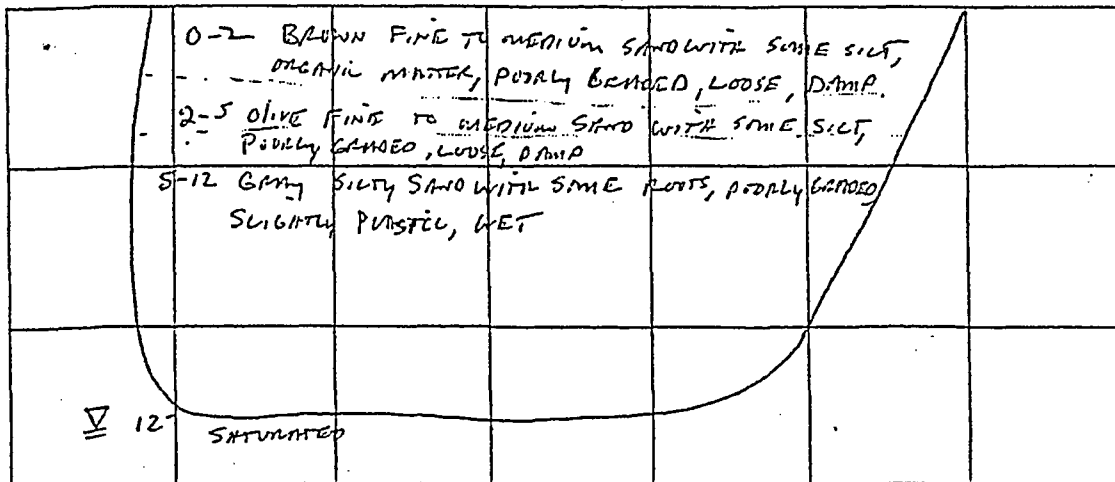 0-2 BROWN FINE TO MEDIUM SAND WITH SOME SILT,
ORGANIC MATTER, POORLY GRADED, LOOSE, DAMP.
2-5 OLIVE FINE TO MEDIUM SAND WITH SOME SILT,
POORLY GRADED, LOOSE, DAMP
5-12 GRAY SILTY SAND WITH SOME ROOTS, POORLY GRADED,
SLIGHTLY PLASTIC, WET
12
SATURATED